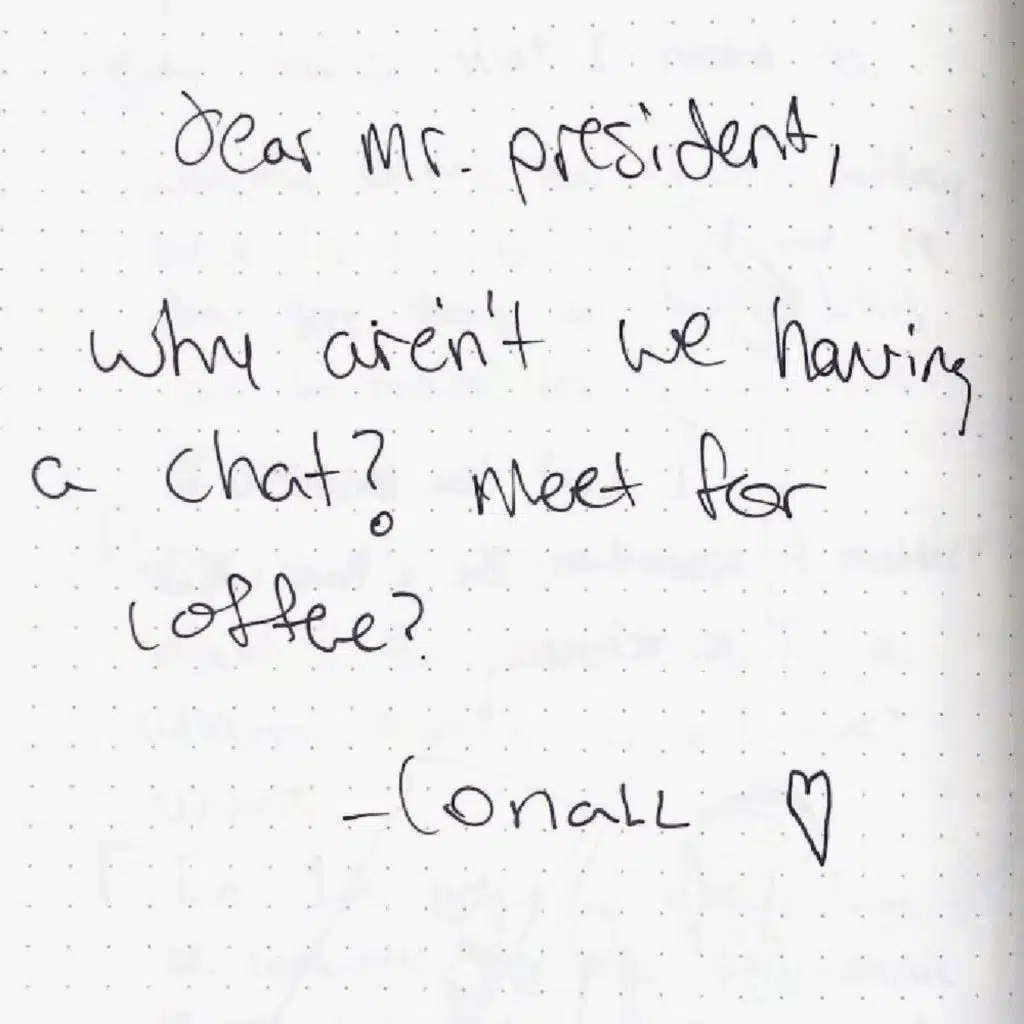 Dear Mr. president,
why aren't we having
a chat? Meet for
coffee?
-Conall ♡